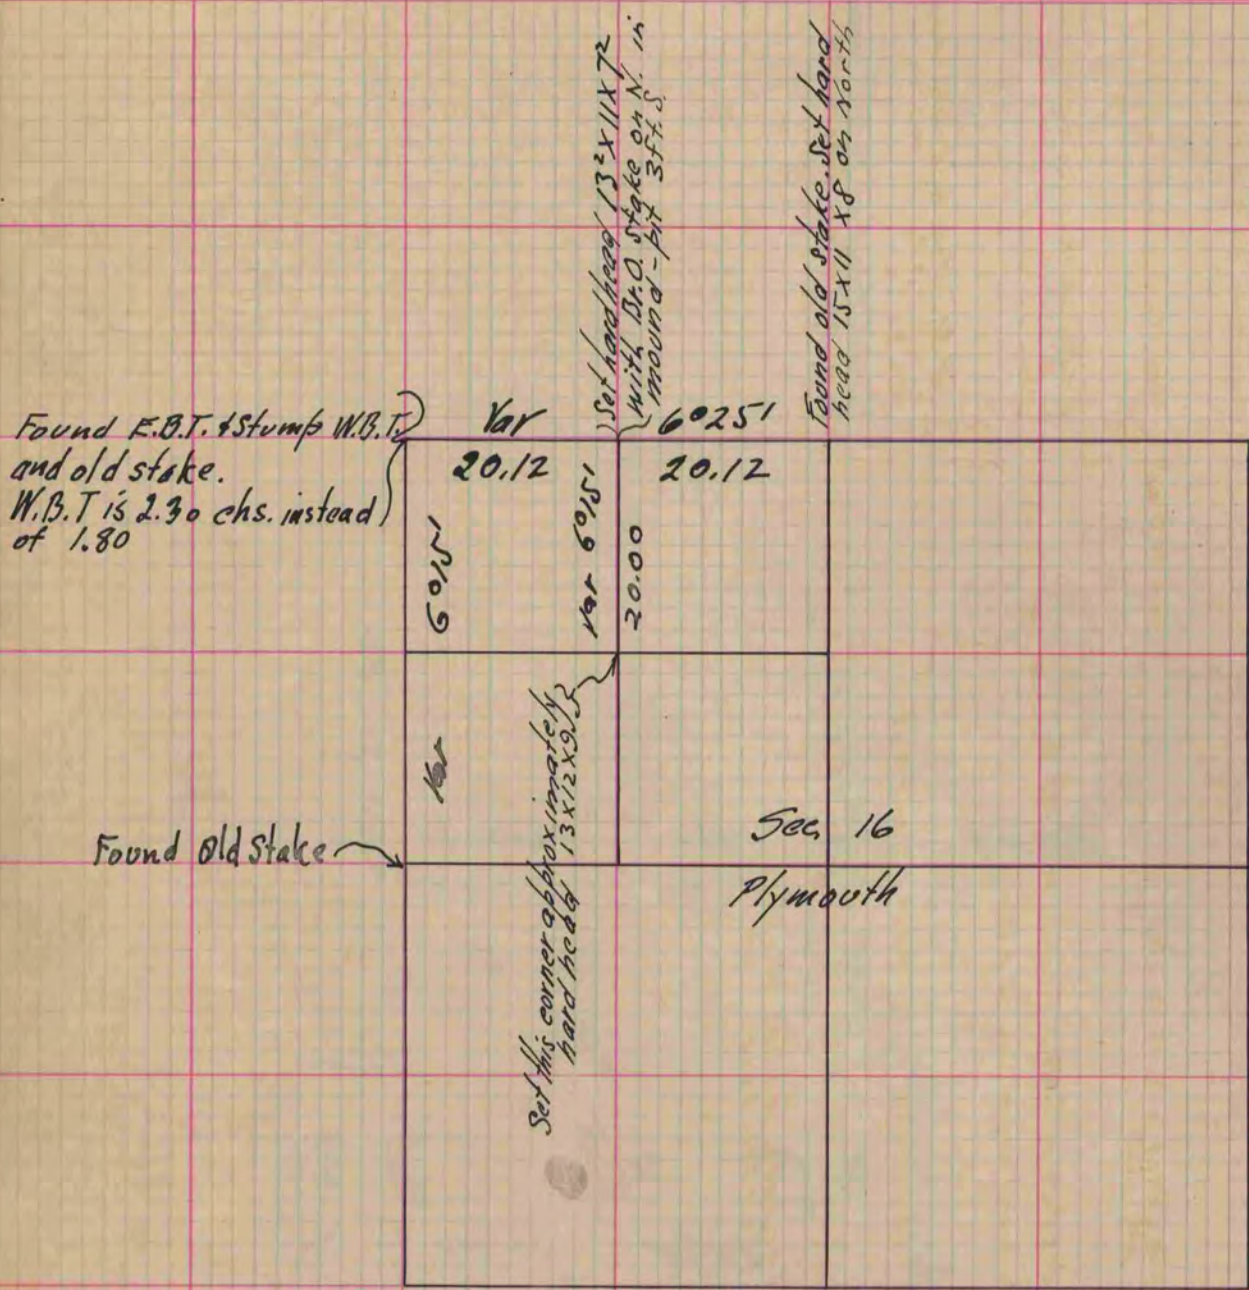 Set hardhead 13² x 11 x 7²
with Br.O. Stake on N. in
mound - pit 3ft. S.
Found old stake. Set hard
head 15 x 11 x 8 on North
Found E.B.T. & Stump W.B.T.
and old stake.
W.B.T is 2.30 chs. instead
of 1.80
Var 6°25'
20.12 20.12
Var 6°15'
Var 6°15'
20.00
Set this corner approximately
hard head 13 x 12 x 9
Found Old Stake
Sec. 16
Plymouth